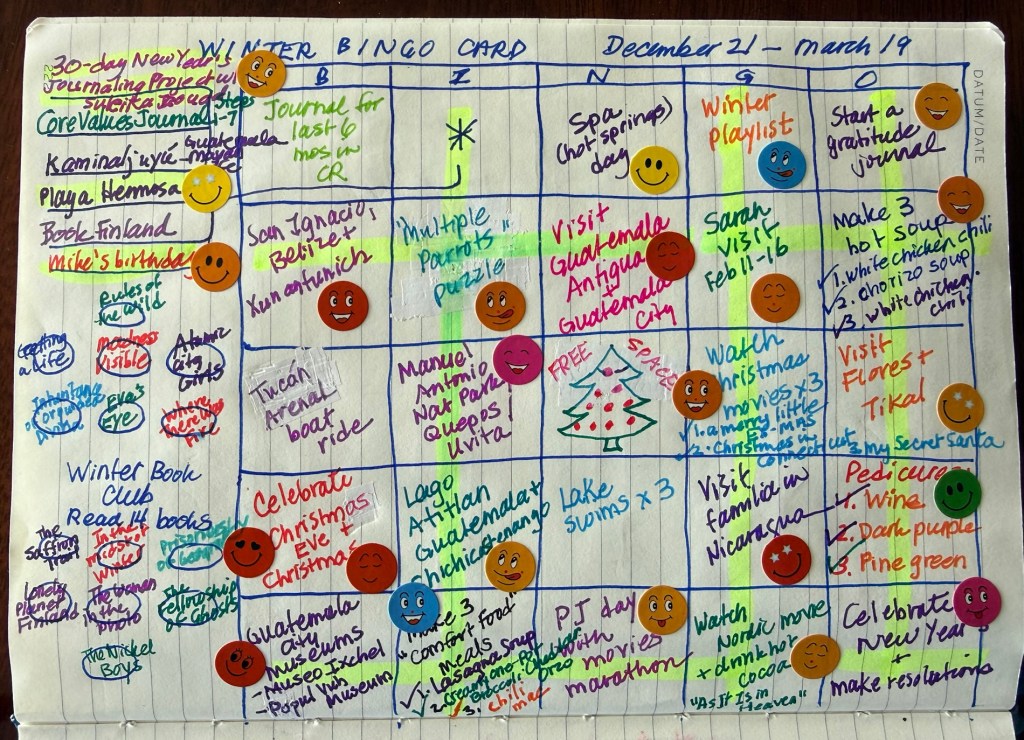 WINTER BINGO CARD
December 21 - March 19
DATUM/DATE
30-day New Year's
Journaling Project w/
Suleika Jaouad
Core Values Journal Steps
1-7
Kaminaljuyú - Guatemala
Playa Hermosa
Book Finland
Mike's birthday
Rules of
the Wild
Getting
a Life
Madness
Visible
Atomic
City
Girls
Inheritance
of Orquídea
Divina
Eva's
Eye
Where
there was
Fire
Winter Book
Club
Read 14 books
The
Saffron
Trail
In the
midst of
winter
Prisoners of
Lonely
Planet
Finland
The Women
in the
Photo
The
Fellowship
of Ghosts
The Nickel
Boys
B
I
N
G
O
Journal for
last 6
mos in
CR
Spa
(hot springs)
day
Winter
playlist
Start a
gratitude
journal
San Ignacio,
Belize +
Xunantunich
"Multiple
Parrots"
puzzle
Visit
Guatemala
Antigua
+
Guatemala
City
Sarah
visit
Feb 11-16
Make 3
hot soups
1. white chicken chili
2. chorizo soup
3. white chicken
chili
Tucán
Arenal
boat
ride
Manuel
Antonio
Nat Park
Quepos/
Uvita
FREE SPACE
Watch
Christmas
movies x 3
1. a merry little
Ex-mas
2. Christmas in
Connecticut
3. my Secret Santa
Visit
Flores +
Tikal
Celebrate
Christmas
Eve +
Christmas
Lago
Atitlan
Guatemala +
Chichicastenango
Lake
swims x 3
Visit
familia in
Nicaragua
Pedicure
1. Wine
2. Dark purple
3. Pine green
Guatemala
City
museums
- Museo Ixchel
- Popol Vuh
museum
Make 3
"comfort food"
meals
1. Lasagna Soup
2. Cream one-Pot
Broccoli Cheddar
Orzo
3. chili
mac
PJ day
with
movies
marathon
Watch
Nordic movie
+ drink hot
cocoa
"As It Is in
Heaven"
Celebrate
New Year
+
make resolutions